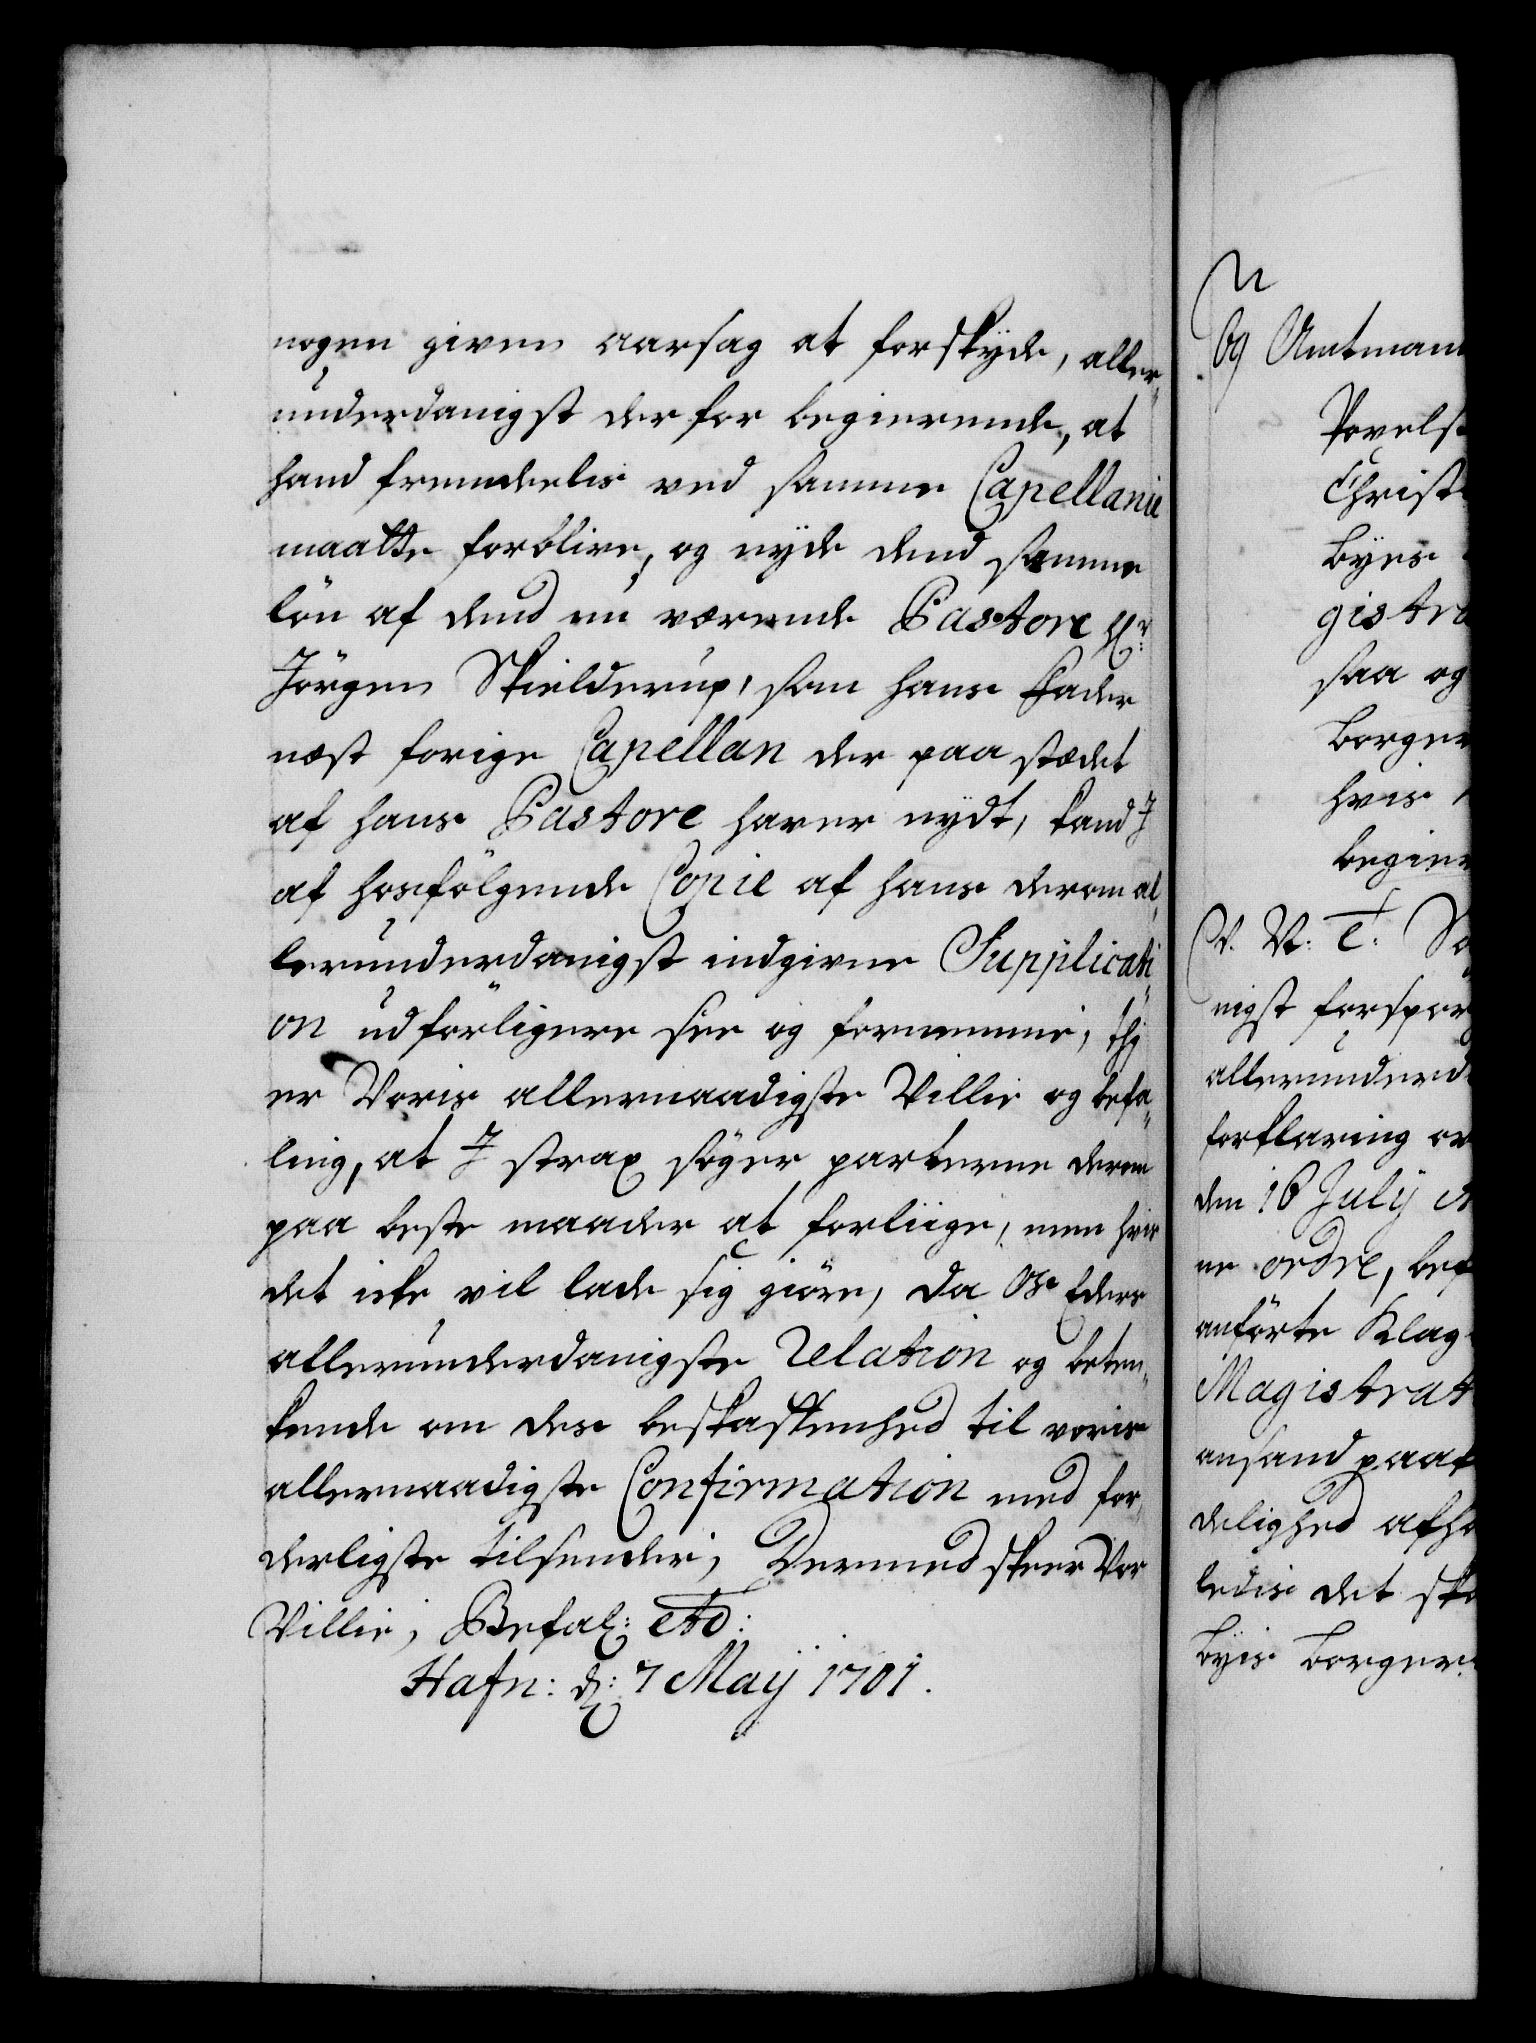 nogen given aarsag at forskyde, aller„
underdanigst der for begierende, at
hand fremdeelis ved samme Capellanie
maatte forblive, og nyde dend samme
lön af dend nu værende Pastore Hr:
Jörgen Skielderup, som hans Fader
næst forige Capellan der paa stædet
af hans Pastore haver nydt, kand J
af hosfölgende Copie af hans derom al„
lerunderdanigst indgivne Supplicati„
on udförligere see og fornemme, thj
er Voris allernaadigste Villie og befa„
ling, at J strax söger parterne derom
paa beste maader at forliige, men hvis
det icke vil lade sig giöre, da Os Eders
allerunderdanigste Relation og beten„
kende om des beskaffenhed til voris
allernaadigste Confirmation med for„
derligste tilsender, Dermed skeer Vor
Villie, Befal: etc:
Hafn: d: 7 Maij 1701.
Og Amtmand
Povels
Christ
Byes
gistra
saa og
borger
hvis
begier
C. V. T. So
nigst forspor
allerunderd
forklaring o
den 16 July
ne ordre, bef
anförte Klag
Magistrat
ansaud paaf
delighed afh
ledis det sk
Byis borger